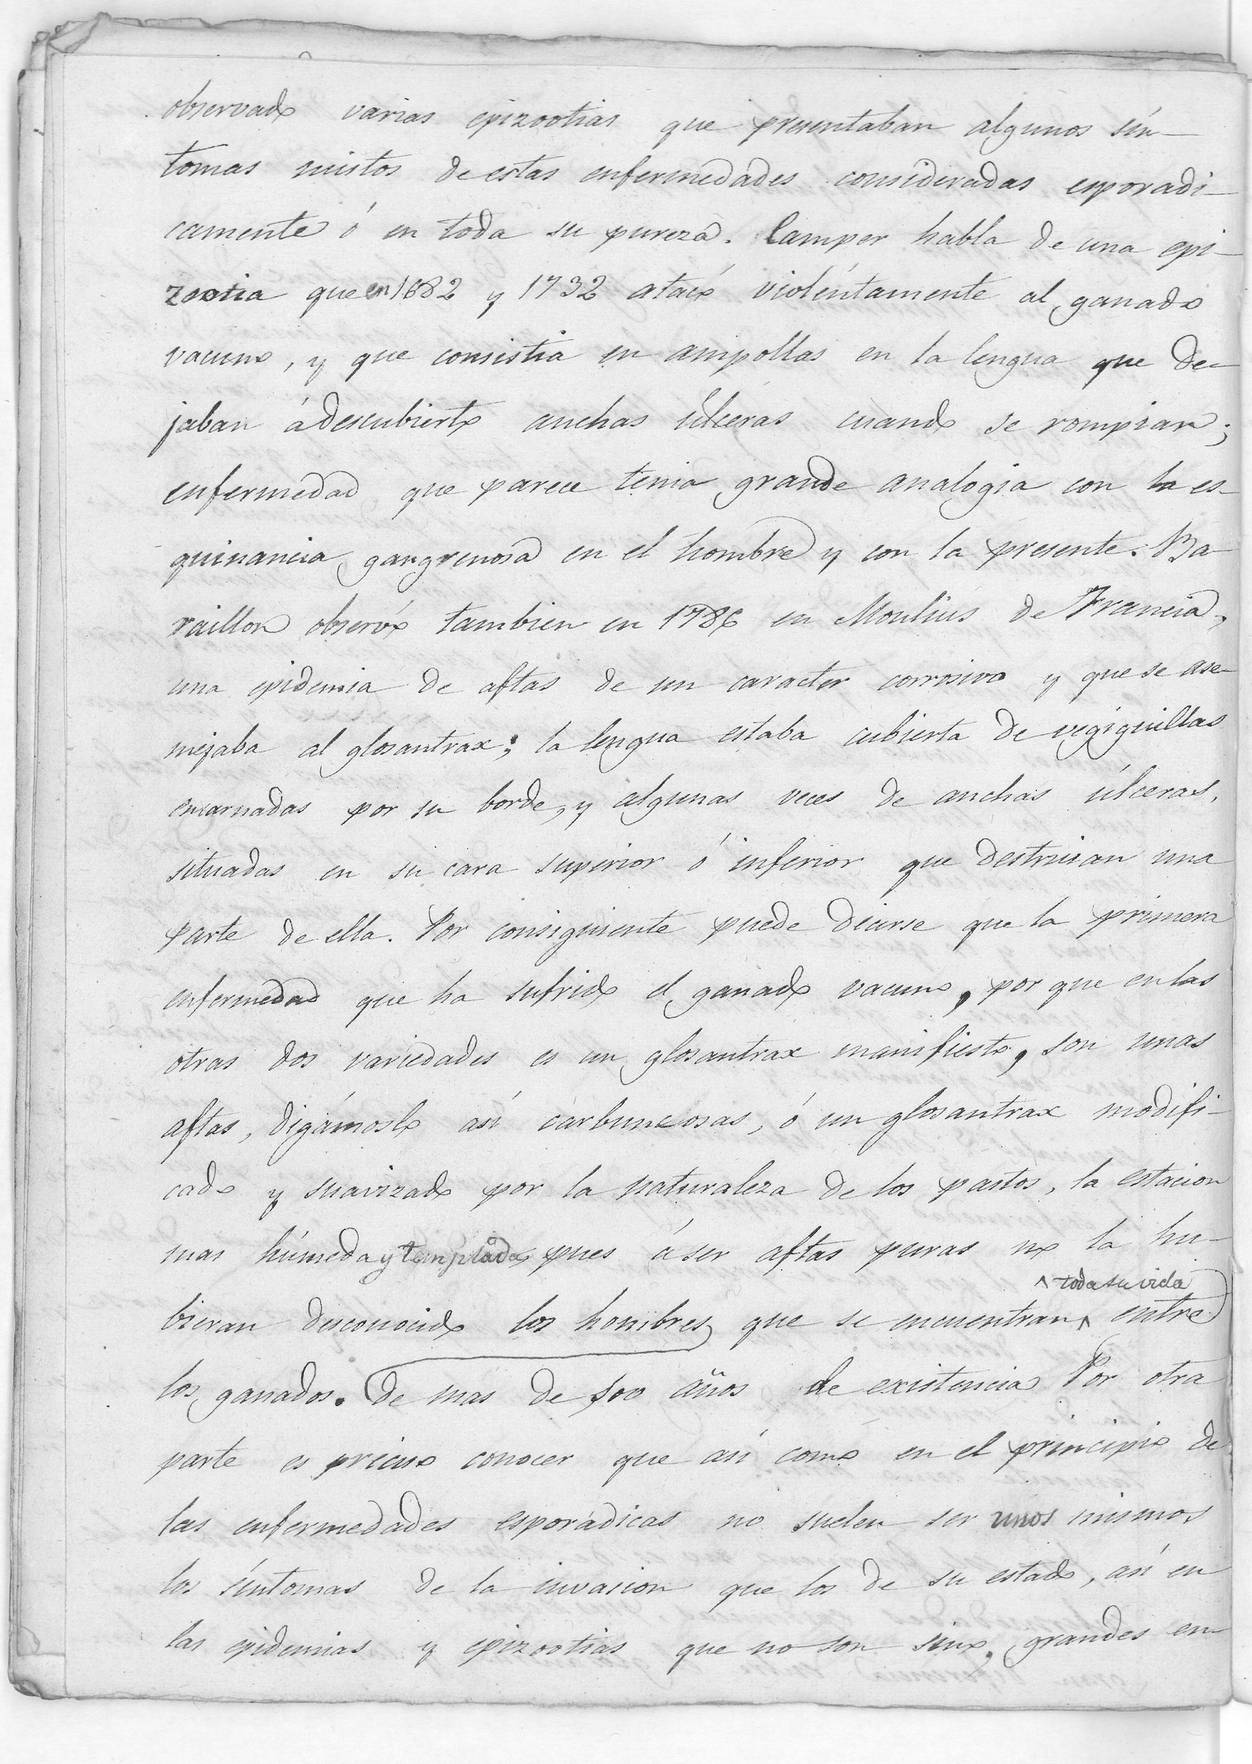 observado varias epizootias que presentaban algunos sín-
tomas mistos de estas enfermedades consideradas esporadi-
camente ó en toda su pureza. Camper habla de una epi-
zootia que en 1682 y 1732 atacó violéntamente al ganado
vacuno, y que consistia en ampollas en la lengua que de-
jaban á descubierto anchas úlceras cuando se rompian;
enfermedad que parece tenia grande analogia con la es-
quinancia gangrenosa en el hombre y con la presente. Ba-
raillon observó tambien en 1786 en Moulins de Francia,
una epidemia de aftas de un caracter corrosivo y que se ase-
mejaba al glosantrax; la lengua estaba cubierta de vegiguillas
encarnadas por su borde, y algunas veces de anchas úlceras,
situadas en su cara superior ó inferior que destruian una
parte de ella. Por consiguiente puede decirse que la primera
enfermedad que ha sufrido el ganado vacuno, por que en las
otras dos variedades es un glosantrax manifiesto, son unas
aftas, digámoslo así carbuncosas, ó un glosantrax modifi-
cado y suavizado por la naturaleza de los pastos, la estacion
mas húmeda y templada pues á ser aftas puras no la hu-
^ toda su vida
bieran desconocido los hombres que se encuentran ^ entre
los ganados. De mas de 500 años de existencia Por otra
parte es preciso conocer que así como en el principio de
las enfermedades esporádicas no suelen ser unos mismos
los síntomas de la invasion que los de su estado, así en
las epidemias y epizootias que no son sino, grandes en-